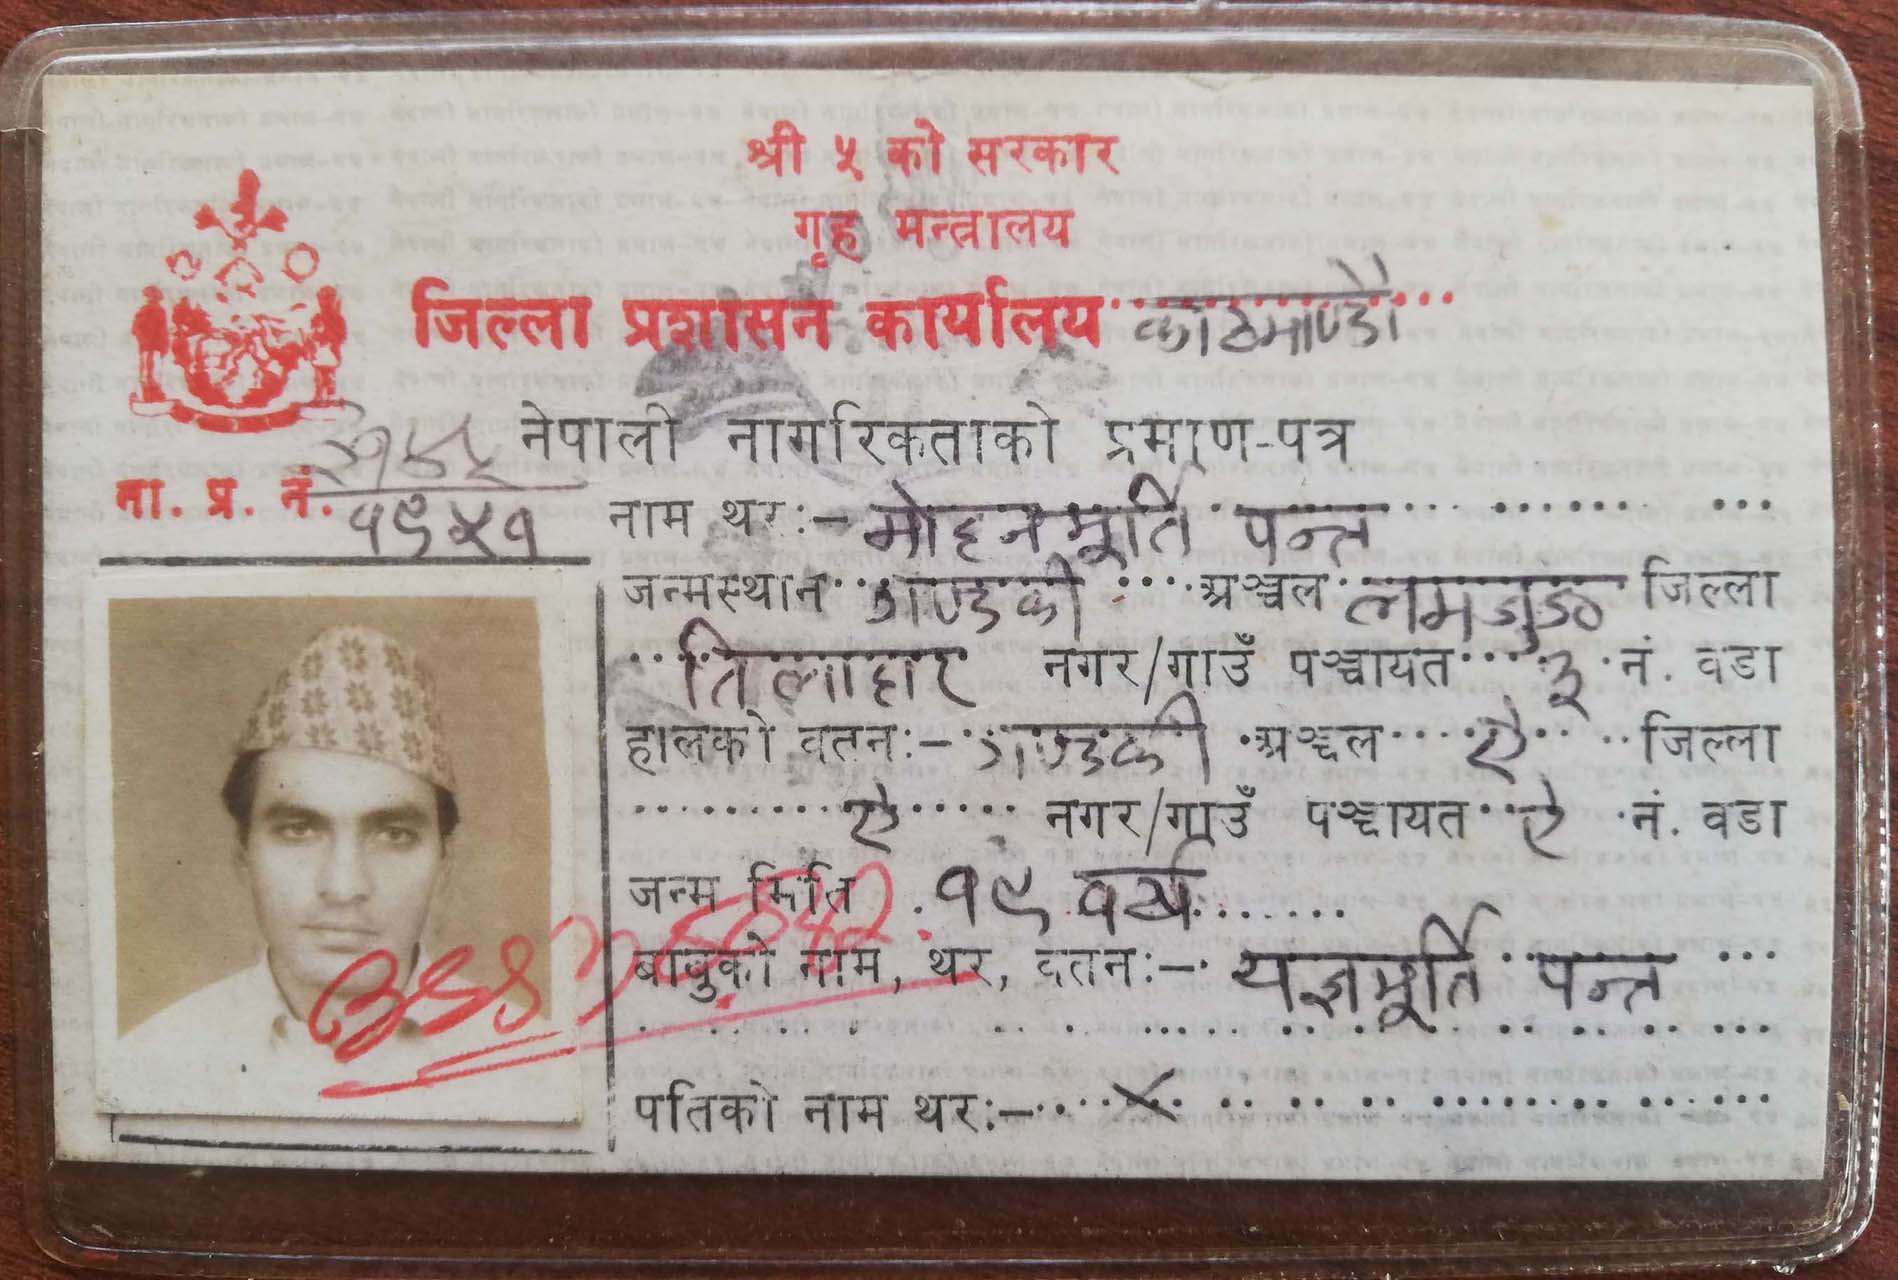 श्री ५ को सरकार
गृह मन्त्रालय
जिल्ला प्रशासन कार्यालय काठमाण्डौ
नेपाली नागरिकताको प्रमाण-पत्र
ना. प्र. नं. १९५१
नाम थर:- मोहनमूर्ति पन्त
जन्मस्थान गण्डकी अञ्चल लमजुङ जिल्ला
तिलाहार नगर/गाउँ पञ्चायत ३ नं. वडा
हालको वतन:- गण्डकी अञ्चल ऐ जिल्ला
ऐ नगर/गाउँ पञ्चायत ऐ नं. वडा
जन्म मिति १९ वर्ष
बाबुको नाम, थर, वतन:- यज्ञमूर्ति पन्त
पतिको नाम थर:- ×